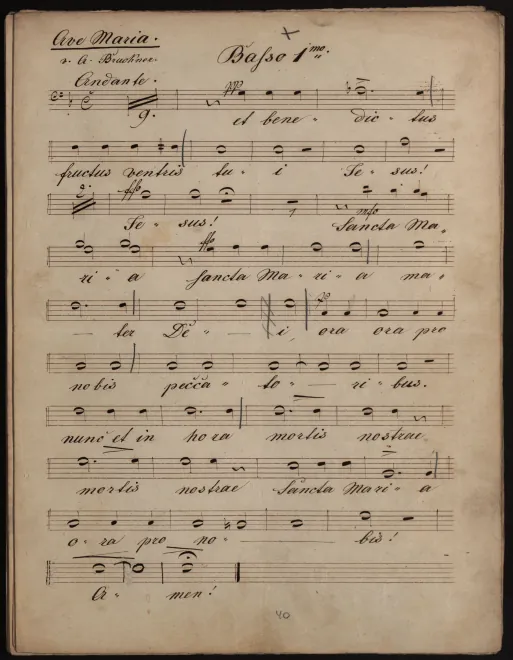 Ave Maria.
v. A. Bruckner.
Basso 1mo.
Andante.
pp
9. et bene " dic " tus
fructus ventris tu " i Je " sus!
2. ffo
1 mfo
Je " sus! Sancta Ma "
ffo
ri " a sancta Ma " ri " a ma "
pp
ter De " i, ora ora pro
nobis pecca " to " ri " bus.
nunc et in hora mortis nostrae
mortis nostrae Sancta Mari " a
o " ra pro no " bis!
A " men!
40